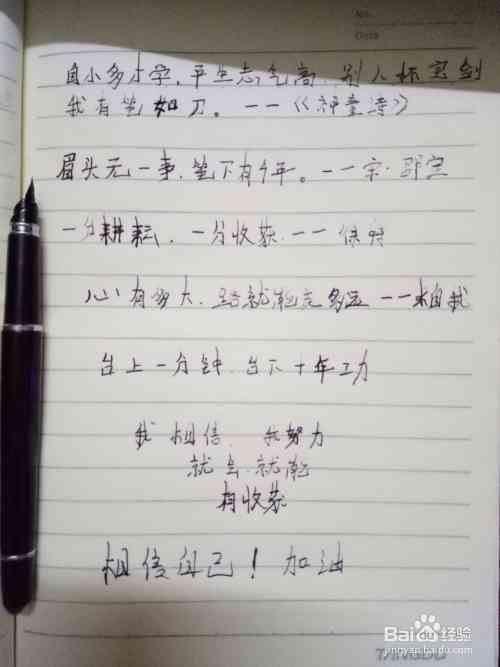 No.
Date
自小多才学,平生志气高,别人怀宝剑
我有笔如刀。——《神童诗》
眉头元一事,笔下有千年。——宋·邵宝
一分耕耘,一分收获——
心有多大,路就能走多远——来自我
台上一分钟,台下十年工力
我相信,我努力
就会,就能
有收获
相信自己!加油
Baidu经验
jingyan.baidu.com